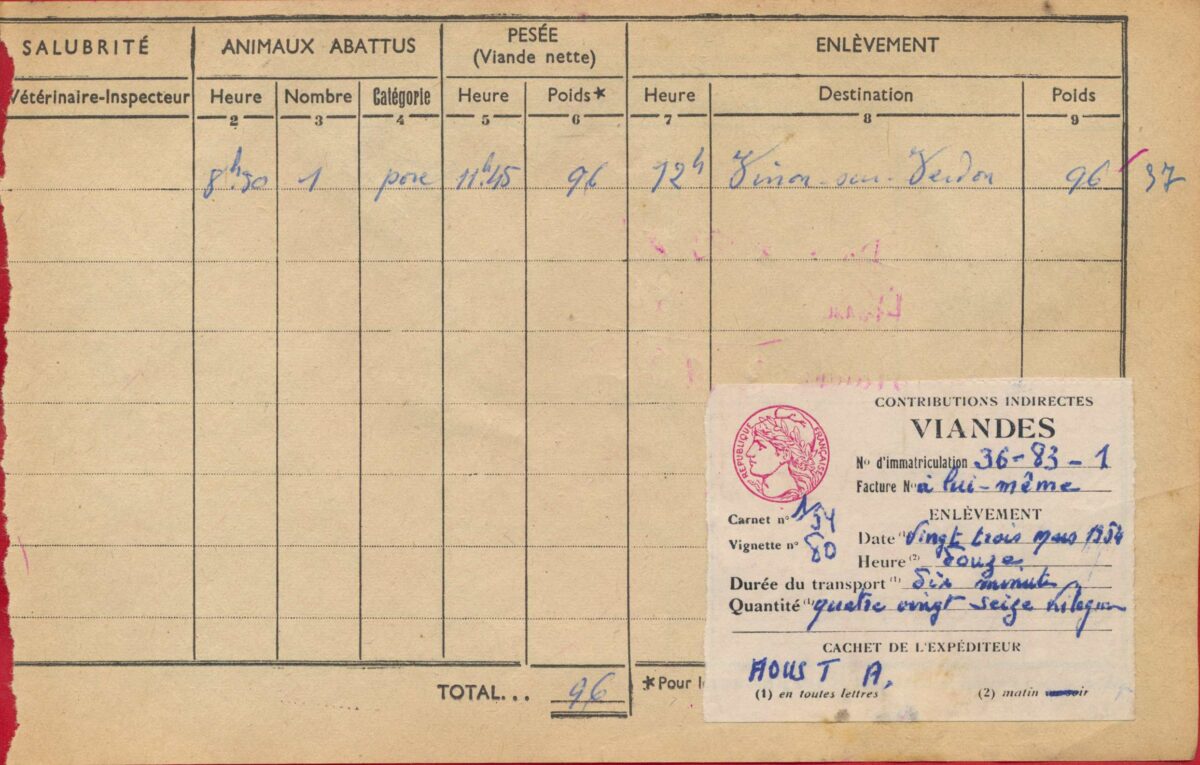 SALUBRITÉ ANIMAUX ABATTUS PESÉE ENLÈVEMENT
(Viande nette)
Vétérinaire-Inspecteur Heure Nombre Catégorie Heure Poids* Heure Destination Poids
2 3 4 5 6 7 8 9
8h30 1 porc 11h45 96 12h Vinon-sur-Verdon 96 37
CONTRIBUTIONS INDIRECTES
VIANDES
RÉPUBLIQUE FRANÇAISE
No d'immatriculation 36-83-1
Facture No à lui-même
ENLÈVEMENT
Carnet no 1/54
Date (1) Vingt trois mars 1954
Vignette no 80
Heure (2) Douze
Durée du transport (1) Dix minutes
Quantité (1) quatre vingt seize
CACHET DE L'EXPÉDITEUR
AOUST A.
(1) en toutes lettres (2) matin soir
TOTAL... 96 *Pour